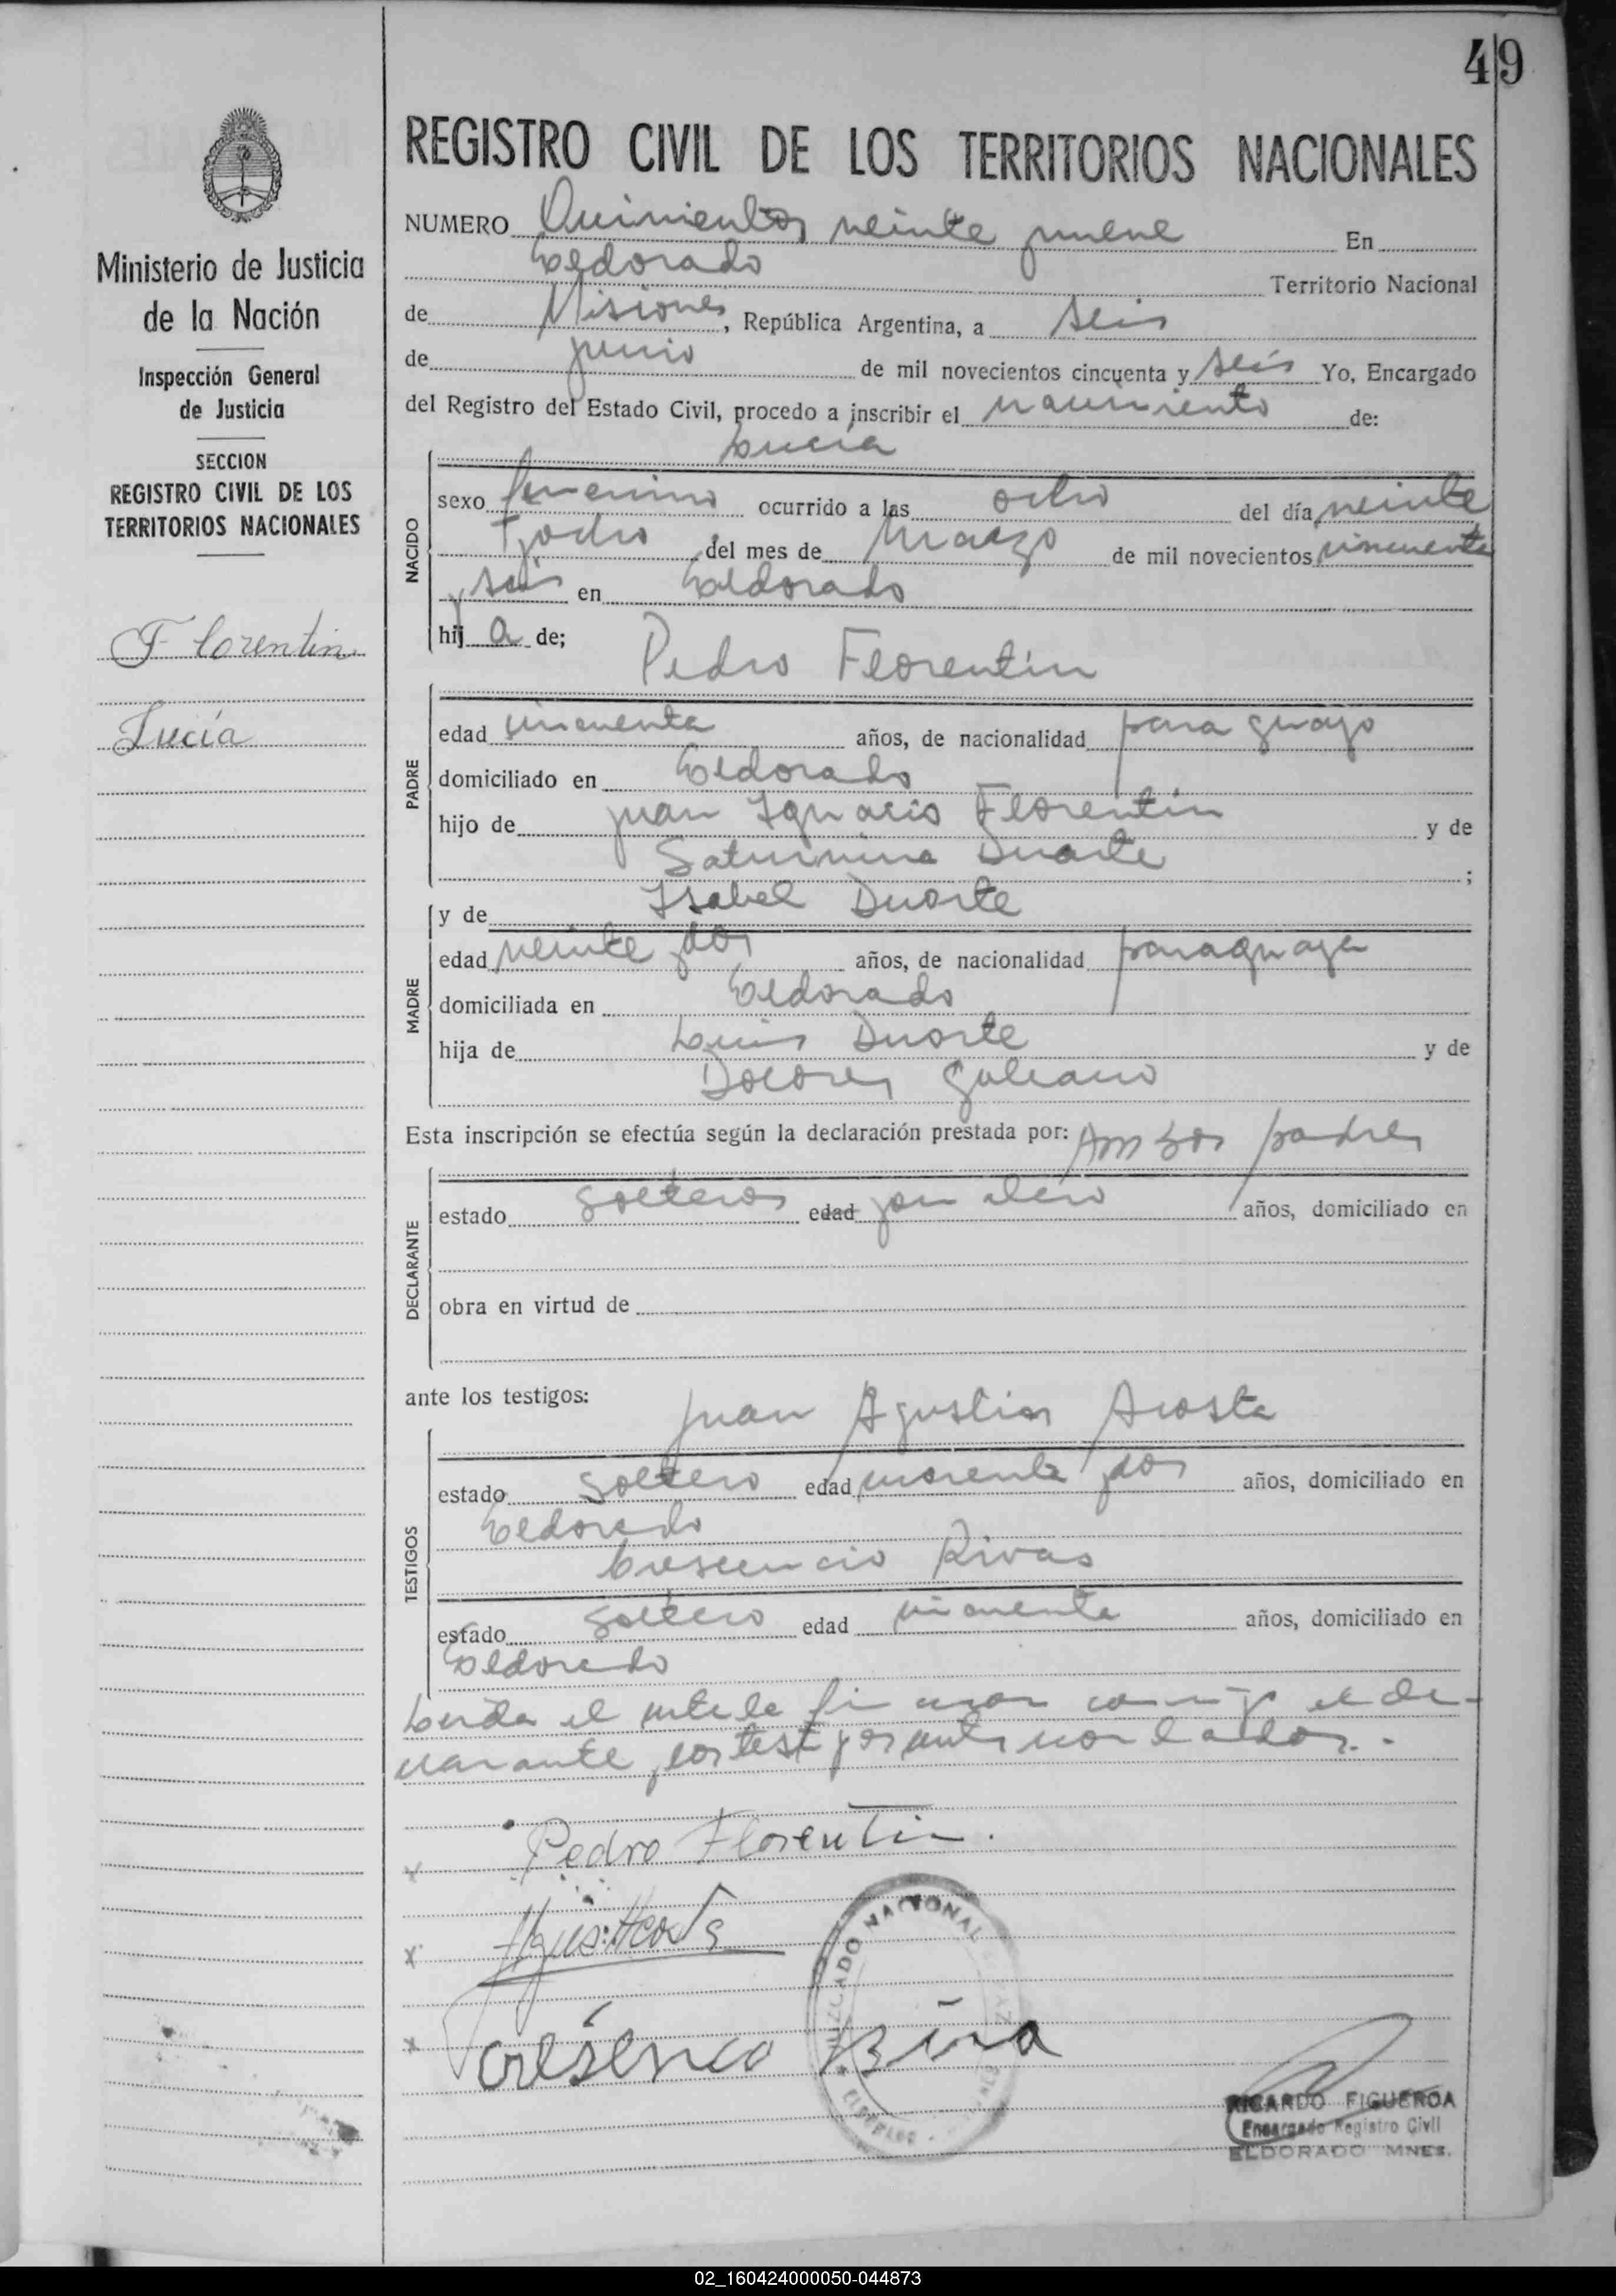 49
REGISTRO CIVIL DE LOS TERRITORIOS NACIONALES
Ministerio de Justicia
de la Nación
Inspección General
de Justicia
SECCION
REGISTRO CIVIL DE LOS
TERRITORIOS NACIONALES
Florentin
Lucía
NUMERO Quinientos veinte y nueve En
Eldorado Territorio Nacional
de Misiones, República Argentina, a seis
de junio de mil novecientos cincuenta y seis Yo, Encargado
del Registro del Estado Civil, procedo a inscribir el nacimiento de:
Lucía
NACIDO
sexo femenino ocurrido a las ocho del día veinte
y ocho del mes de Marzo de mil novecientos cincuenta
y seis en Eldorado
hija de;
Pedro Florentín
PADRE
edad cincuenta años, de nacionalidad paraguayo
domiciliado en Eldorado
hijo de Juan Ignacio Florentín y de
Saturnina Duarte ;
y de Isabel Duarte
MADRE
edad veinte y dos años, de nacionalidad paraguaya
domiciliada en Eldorado
hija de Luis Duarte y de
Dolores Galeano
Esta inscripción se efectúa según la declaración prestada por: Ambos padres
DECLARANTE
estado solteros edad años, domiciliado en
obra en virtud de
ante los testigos:
Juan Agustin Acosta
TESTIGOS
estado soltero edad cuarenta y dos años, domiciliado en
Eldorado
Crescencio Rivas
estado soltero edad cincuenta años, domiciliado en
Eldorado
Leida el acta la firman conmigo el de-
clarante y los testigos
Pedro Florentin.
JUZGADO NACIONAL
RICARDO FIGUEROA
Encargado Registro Civil
ELDORADO MNES.
02_160424000050-044873